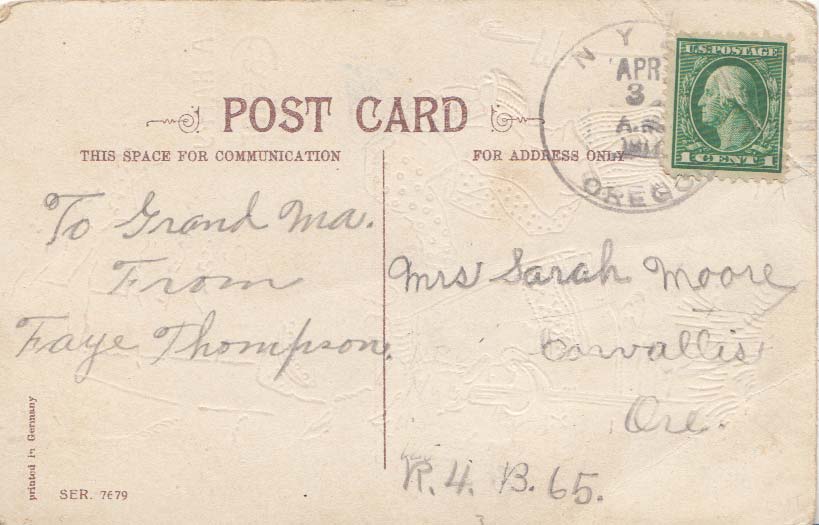 POST CARD
THIS SPACE FOR COMMUNICATION
FOR ADDRESS ONLY
N Y
APR
3
OREGON
U.S. POSTAGE
1 CENT 1
To Grand Ma.
From
Faye Thompson.
Mrs Sarah Moore
Corvallis
Ore.
R. 4. B. 65.
printed in Germany
SER. 7679